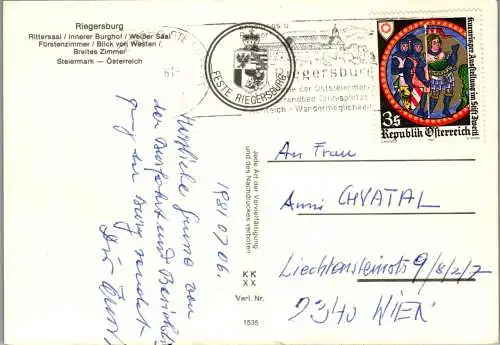 Riegersburg
Rittersaal / Innerer Burghof / Weißer Saal
Fürstenzimmer / Blick von Westen /
Breites Zimmer
Steiermark — Österreich
FESTE RIEGERSBURG
Riegersburg
der Oststeiermark
Wandermöglichkeit
Kuenringer Ausstellung im Stift Zwettl
3s
Republik Österreich
1981 07 06.
Herzliche Grüße von
der Busfahrt und Besichti
gung der Burg sendet
Jede Art der Vervielfältigung
und des Nachdruckes verboten
KK
XX
Verl. Nr.
1535
An Frau
Anni CHVATAL
Liechtensteinstr 9/8/2/7
WIEN